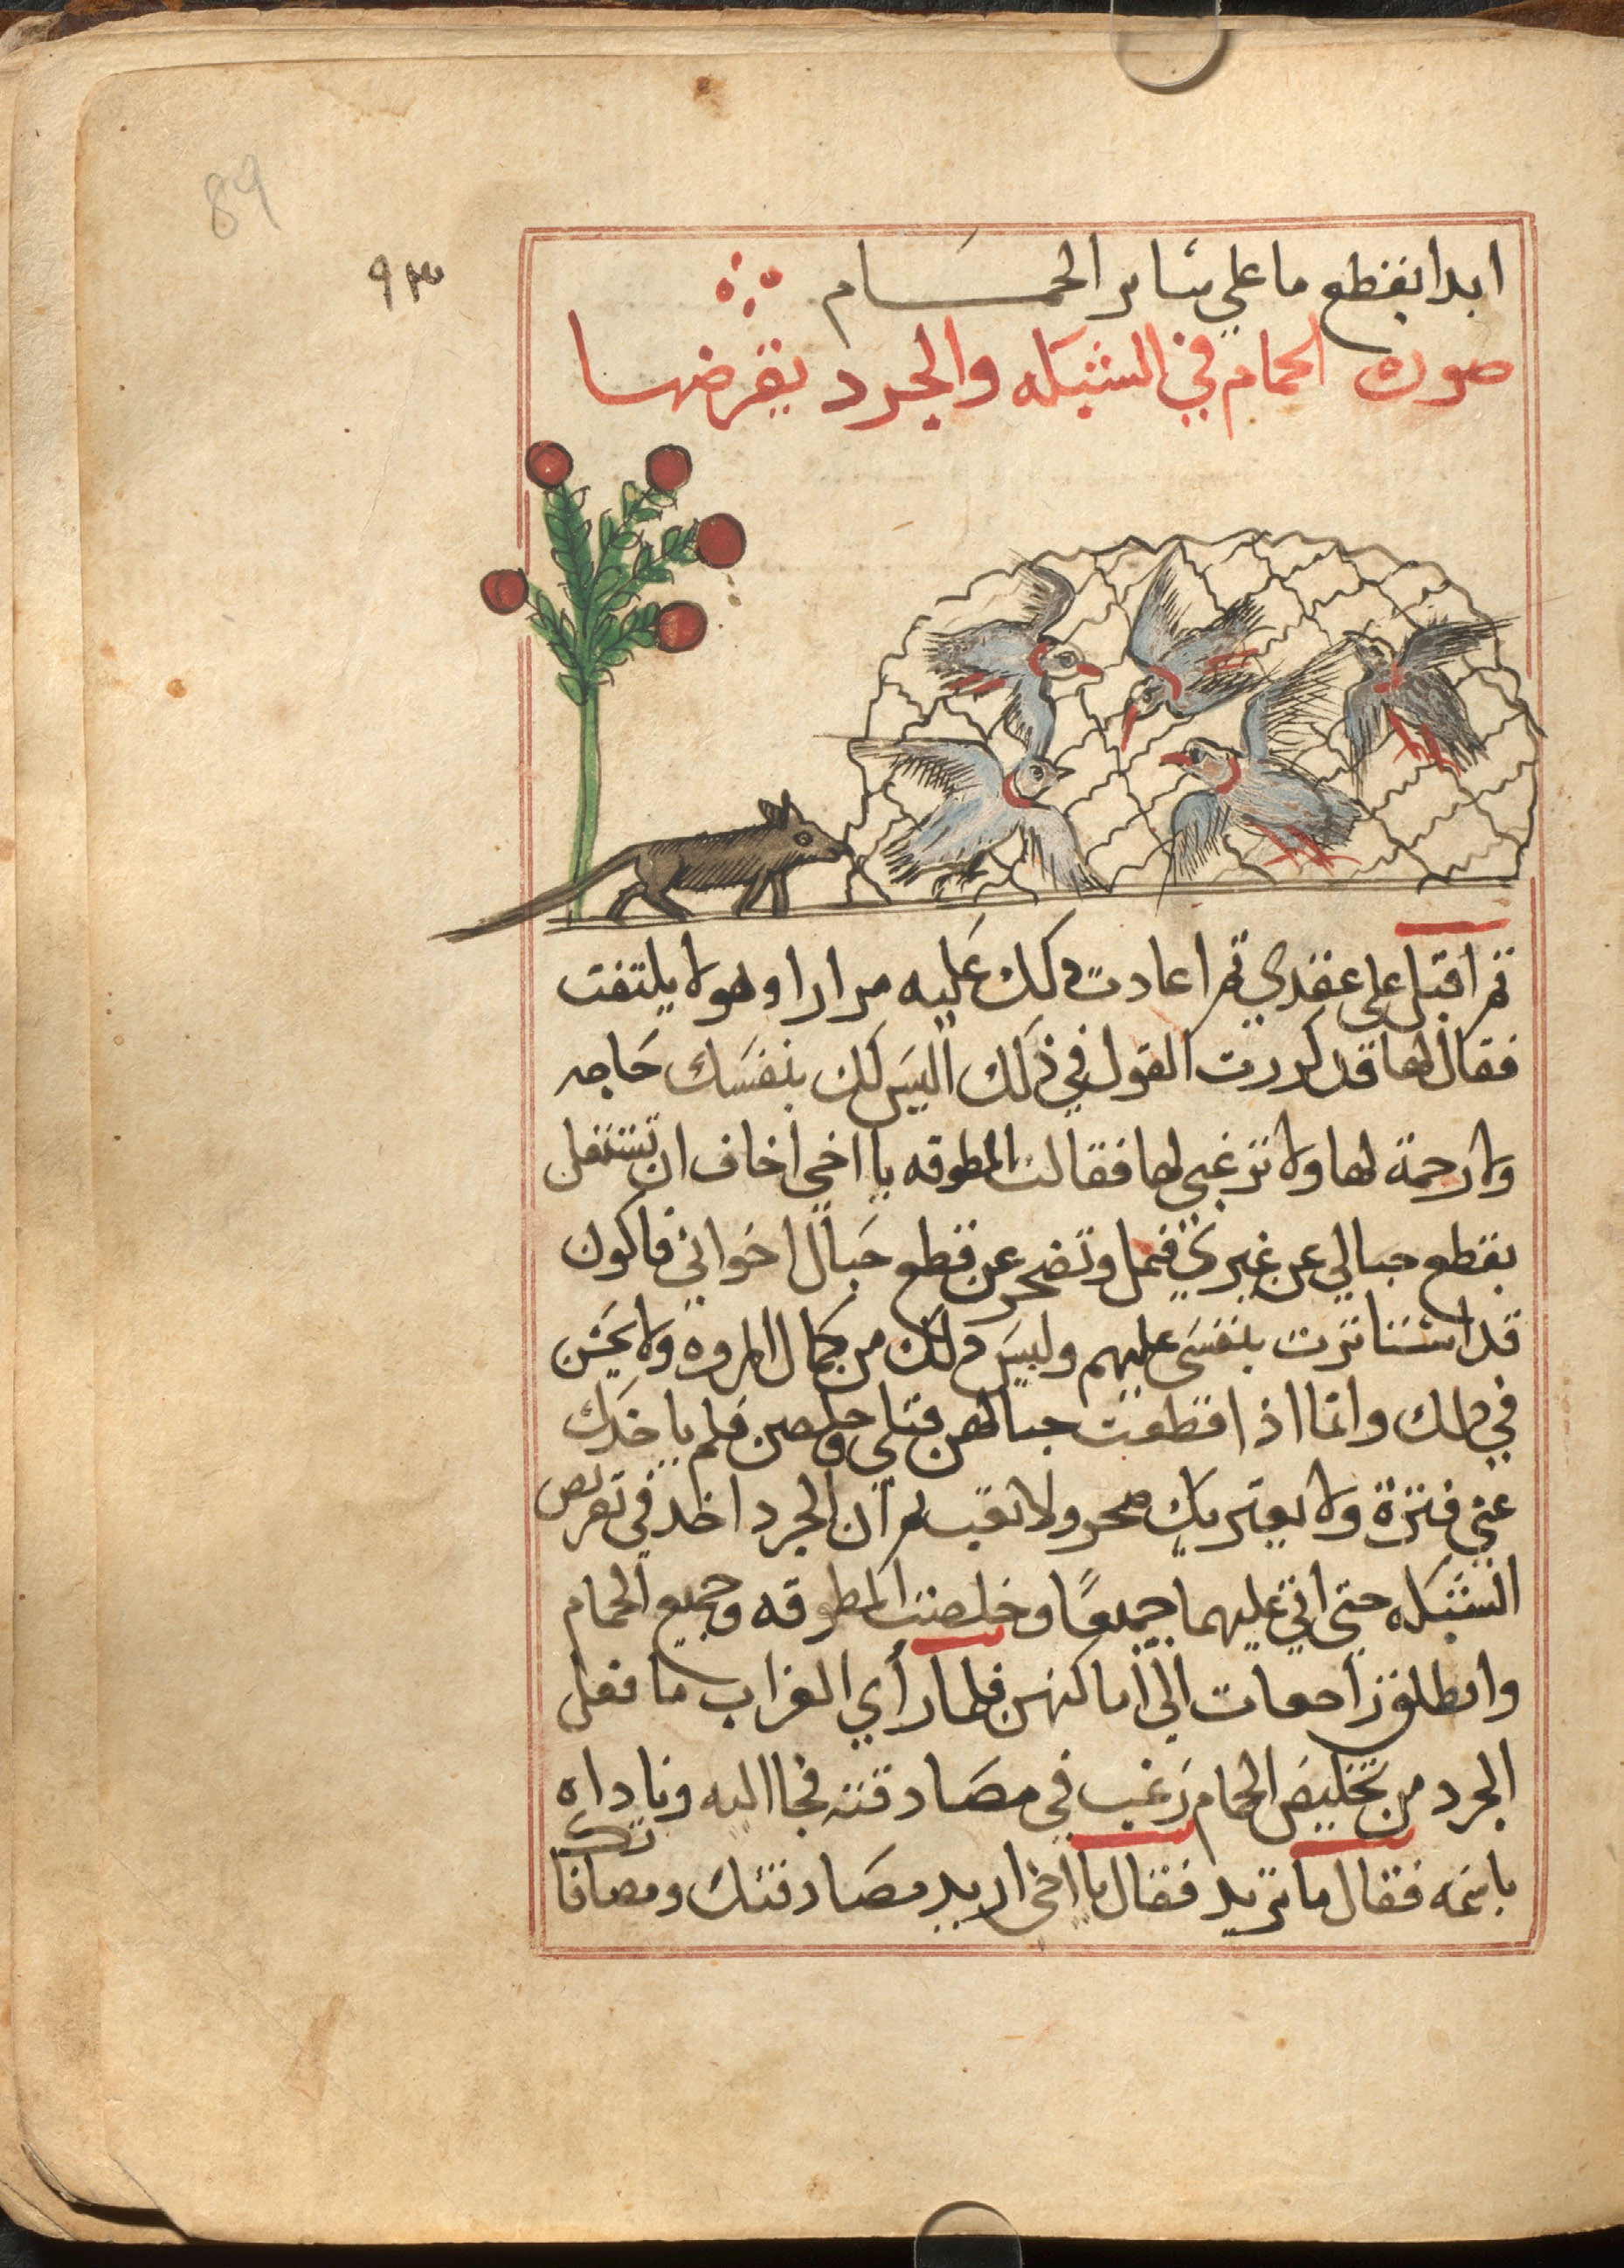 89
٩٣
ابدا بقطع ما علي سائر الحمام
صورة الحمام في الشبكه والجرد يقرضها
ثم اقبل علي عقدي ثم اعادت ذلك عليه مرارا وهو لا يلتفت
فقال لها قد كررت القول في ذلك اليس لك بنفسك حاجه
ولا رحمة لها ولا ترغبي لها فقالت المطوقه يا اخي اخاف ان تشتغل
بقطع حبالي عن غيري فتمل وتضجر عن قطع حبال اخواني فاكون
قد استاثرت بنفسي عليهم وليس ذلك من كمال المروه ولا يحسن
في ذلك وانما اذا قطعت حبالهن قبلي وخلصن فلم ياخدك
عني فترة ولا يعتريك ضجر ولا تعب ثم ان الجرد اخد في تقريض
الشبكه حتي اتي عليهما جميعًا وخلصت المطوقه وجميع الحمام
وانطلقن راجعات الي اماكنهن فلما رأي الغراب ما فعل
الجرد من تخليص الحمام رغب في مصادقته فجا اليه وناداه
باسمه فقال ما تريد فقال يا اخي اريد مصادقتك ومصافا
تك